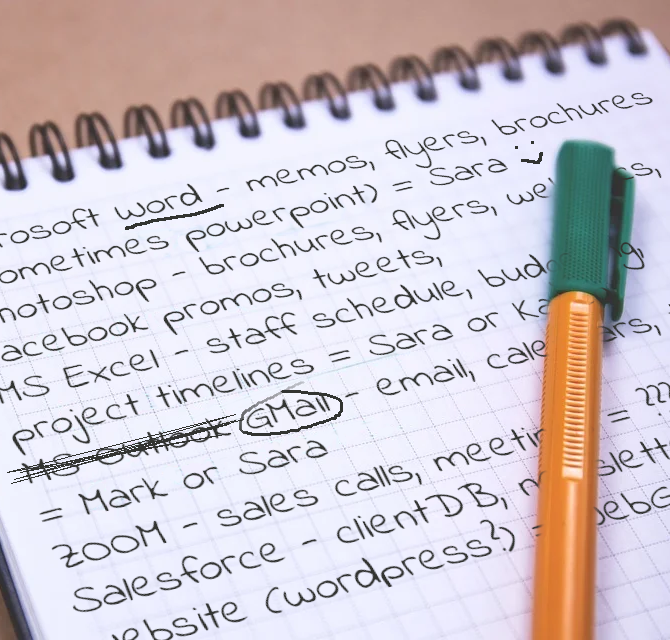 rosoft word - memos, flyers, brochures
ometimes powerpoint) = Sara
hotoshop - brochures, flyers,
acebook promos, tweets,
MS Excel - staff schedule,
project timelines = Sara or
MS Outlook GMail - email,
= Mark or Sara
ZOOM - sales calls, = ???
Salesforce - clientDB,
ebsite (wordpress?) =